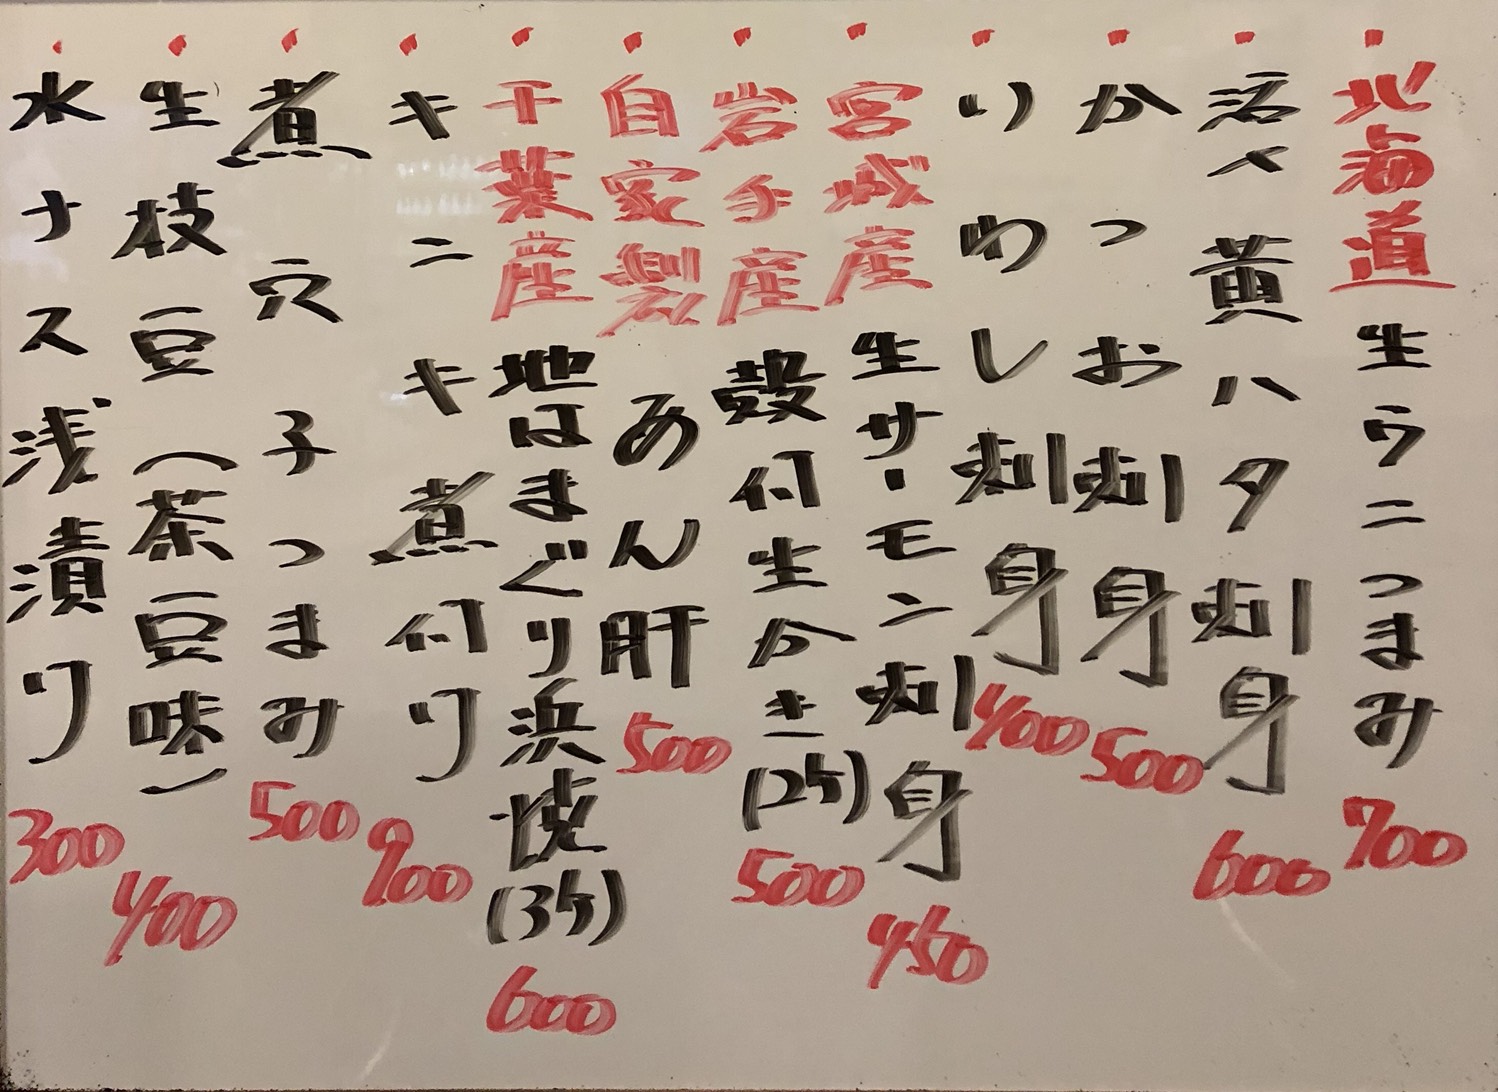 北海道 生ウニつまみ 700
活〆黄ハタ刺身 600
かつお刺身 500
いわし刺身 400
宮城産 生サーモン刺身 450
岩手産 殻付生かき(2ケ) 500
自家製 あん肝 500
千葉産 地はまぐり浜焼(3ケ) 600
キンキ煮付け 900
煮穴子つまみ 500
生枝豆(茶豆味) 400
水ナス浅漬け 300